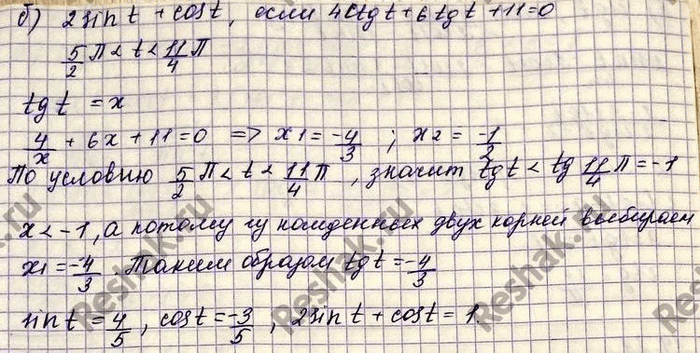 б) 2sin t + cos t, если 4ctg t + 6tg t + 11 = 0
5/2 π < t < 11/4 π
tg t = x
4/x + 6x + 11 = 0 => x1 = -4/3 ; x2 = -1/2
По условию 5/2 π < t < 11/4 π, значит tg t < tg 11/4 π = -1
x < -1, а потому из найденных двух корней выбираем
x1 = -4/3. Таким образом tg t = -4/3
sin t = 4/5, cos t = -3/5, 2sin t + cos t = 1.
Reshak.ru
Reshak.ru
Reshak.ru